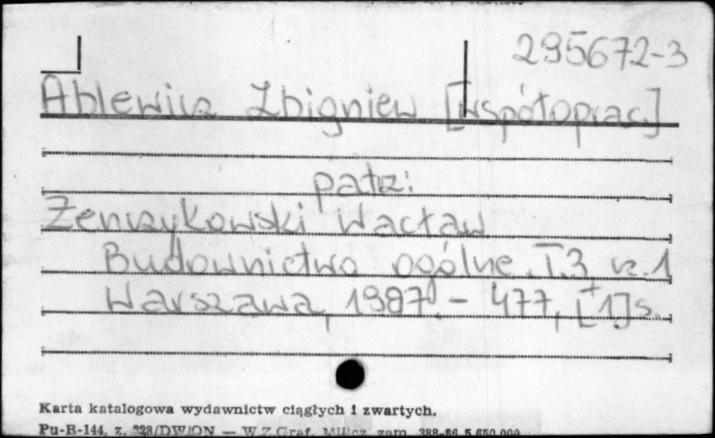 295672-3
Ablewicz Zbigniew [współoprac.]
patrz:
Żenczykowski Wacław
Budownictwo ogólne. T.3 cz.1
Warszawa, 1987. - 477, [+1] s.
Karta katalogowa wydawnictw ciągłych i zwartych.
Pu-B-144, z. 228/DW/ON — W.Z.Graf. Milicz zam. 388-86 5.650.000